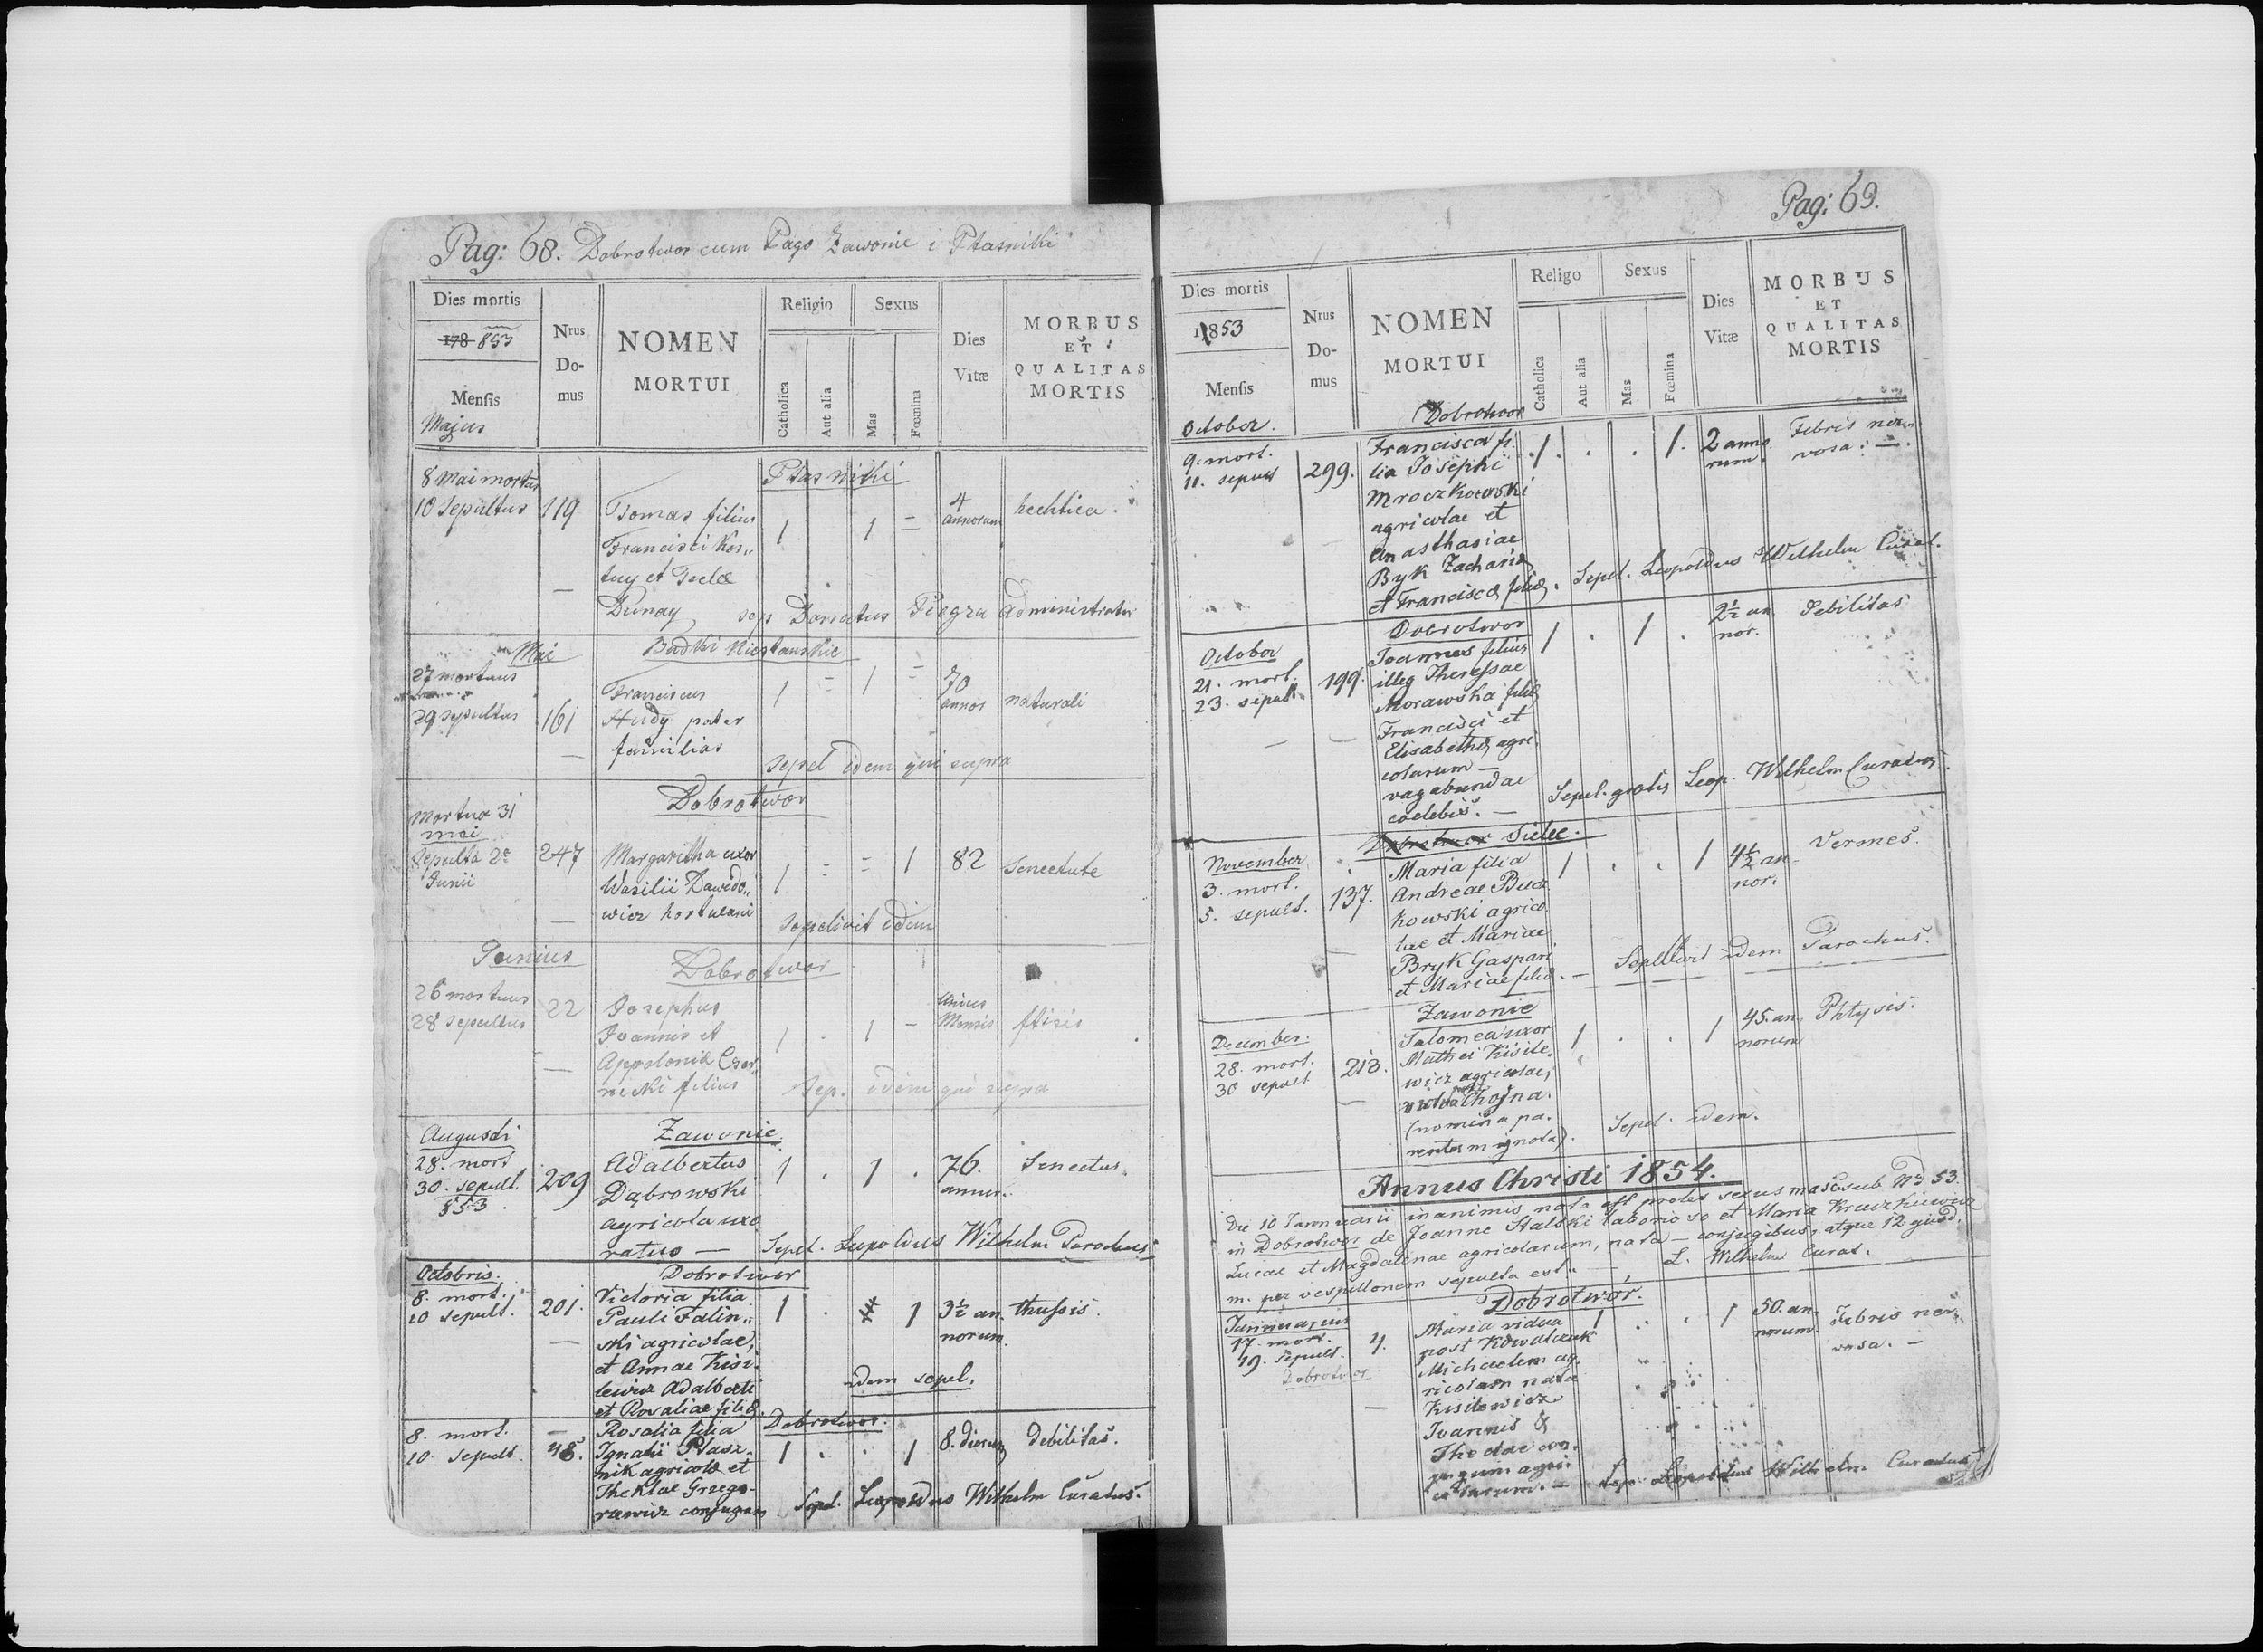 Pag: 68. Dobrotwor cum Pago Zawonie i Ptasniki
Dies mortis
178 853
Mensis
Majus
Nrus
Do-
mus
NOMEN
MORTUI
Religio
Catholica
Aut alia
Sexus
Mas
Fœmina
Dies
Vitæ
MORBUS
ET
QUALITAS
MORTIS
Ptasniki
8 Mai mortus
10 Sepultus 119 Tomas filius 1 1 = 4 annorum hechtica.
Francisci Kos„
tuy et Teclæ
Dunay sep Donatus Piegza Administrator
Mai Budki Niestanskie
27 mortuus
29 sepultus 161 Franciscus 1 = 1 = 70 annos naturali
Hudy pater
familias
sepel idem qui supra
Dobrotwor
Mortua 31
mai
Sepulta 2
Junii
247 Margaritha uxor 1 = = 1 82 Senectute
Wasilii Dawido„
wicz hortulani
sepelivit idem
Junius Dobrotwor
26 mortuus
28 sepultus 22 Josephus 1 . 1 - Unius Mensis ftisis
Joannis et
Appoloniæ Czer„
niecki filius
Sep. idem qui supra
Augusti Zawonie.
28. mort
30. sepult.
853.
209 Adalbertus 1 . 1 . 76. annor. Senectus.
Dąbrowski
agricola uxo
ratus —
Sepel. Leopoldus Wilhelm Parochus
Octobris. Dobrotwor
8. mort.
10 sepult. 201. Victoria filia 1 . 1 3½ an„ norum. thussis.
Pauli Falin„
ski agricolae,
et Annae Kisi.
lewicz Adalberti
et Rosaliae filiæ.
idem sepel.
Dobrotwor.
8. mort.
10 sepult. 48. Rosalia filia 1 . . 1 8. dierum debilitas.
Ignatii Ptasz.
nik agricolæ et
Theklae Grzego-
rzewicz conjugum
Sepel. Leopoldus Wilhelm Curatus.
Pag: 69.
Dies mortis
1853
Mensis
October.
Nrus
Do-
mus
NOMEN
MORTUI
Religo
Catholica
Aut alia
Sexus
Mas
Fœmina
Dies
Vitæ
MORBUS
ET
QUALITAS
MORTIS
Dobrotwor
9. mort.
11. sepult 299. Francisca fi. 1. . . 1. 2 anno rum. Febris ner„ vosa. —.
lia Josephi
Mroczkowski
agricolae et
Anasthasiae
Byk Zachariæ
et Franciscæ filiæ. Sepel. Leopoldus Wilhelm Curat.
Dobrotwor
October
21. mort.
23. sepult. 199. Joannes filius 1 . 1 . 2½ an nor. Debilitas
illeg Theressae
Morawska filiæ
Francisci et
Elisabethæ agri.
colarum —
vagabundae
coelebis. —
Sepel. gratis Leop. Wilhelm Curatus.
Dobrotwor Sielec.
November
3. mort.
5. sepult. 137. Maria filia 1 . . 1 4½ an nor. Vermes.
Andreae Bucz
kowski agrico.
lae et Mariae
Bryk Gaspari
et Mariae filiæ. — Sepelivit idem Parochus.
Zawonie
December.
28. mort.
30. sepult 213. Salomea uxor 1 . . 1 45. an„ norum Phtysis.
Mathei Kisile.
wicz agricolae,
Chojna.
(nomina pa.
rentum ignota).
Sepel. idem.
Annus Christi 1854.
Die 10 Januarii inanimis nata est proles sexus masc sub No 53.
in Dobrotwor de Joanne Stalski laborioso et Maria Kruczkiewicz
Lucae et Magdalinae agricolarum, nata — conjugibus, atque 12 ejusd.
m. per vespillonem sepulta est. — L. Wilhelm Curat.
Dobrotwor.
Januuarius
17. mort.
19. sepult.
Dobrotwor
4. Maria vidua 1 . . 1 50. an. norum. Febris ner„ vosa. —
post Kowalczuk
Michaelem ag.
ricolam nata
Kisilewicz
Joannis &
Theclae con.
jugum agri.
colarum. — Leopoldus Wilhelm Curatus